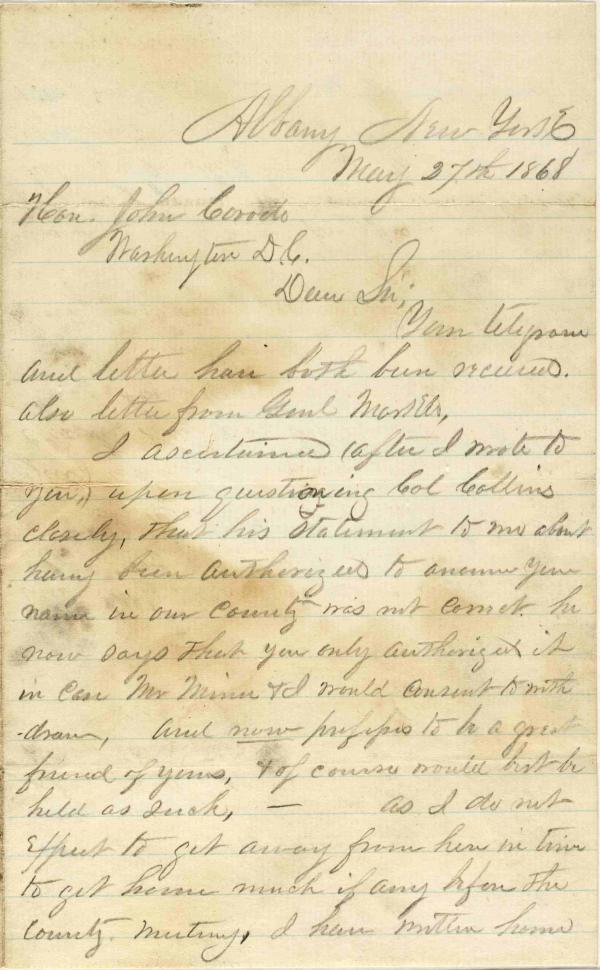 Albany New York
May 27th 1868
Hon. John Covode
Washington D.C.
Dear Sir;
Your telegram
and letter have both been received.
also letter from Genl
I ascertained (after I wrote to
you,) upon questioning Col Collins
closely, that his statement to me about
having been authorized to announce your
name in our County was not correct. he
now says that you only authorized it
in case Mr Miner & I would consent to with
-draw, and now professes to be a great
friend of yours, & of course would best be
held as such, — as I do not
Expect to get away from here in time
to get home much if any before the
County Meeting, I have written home